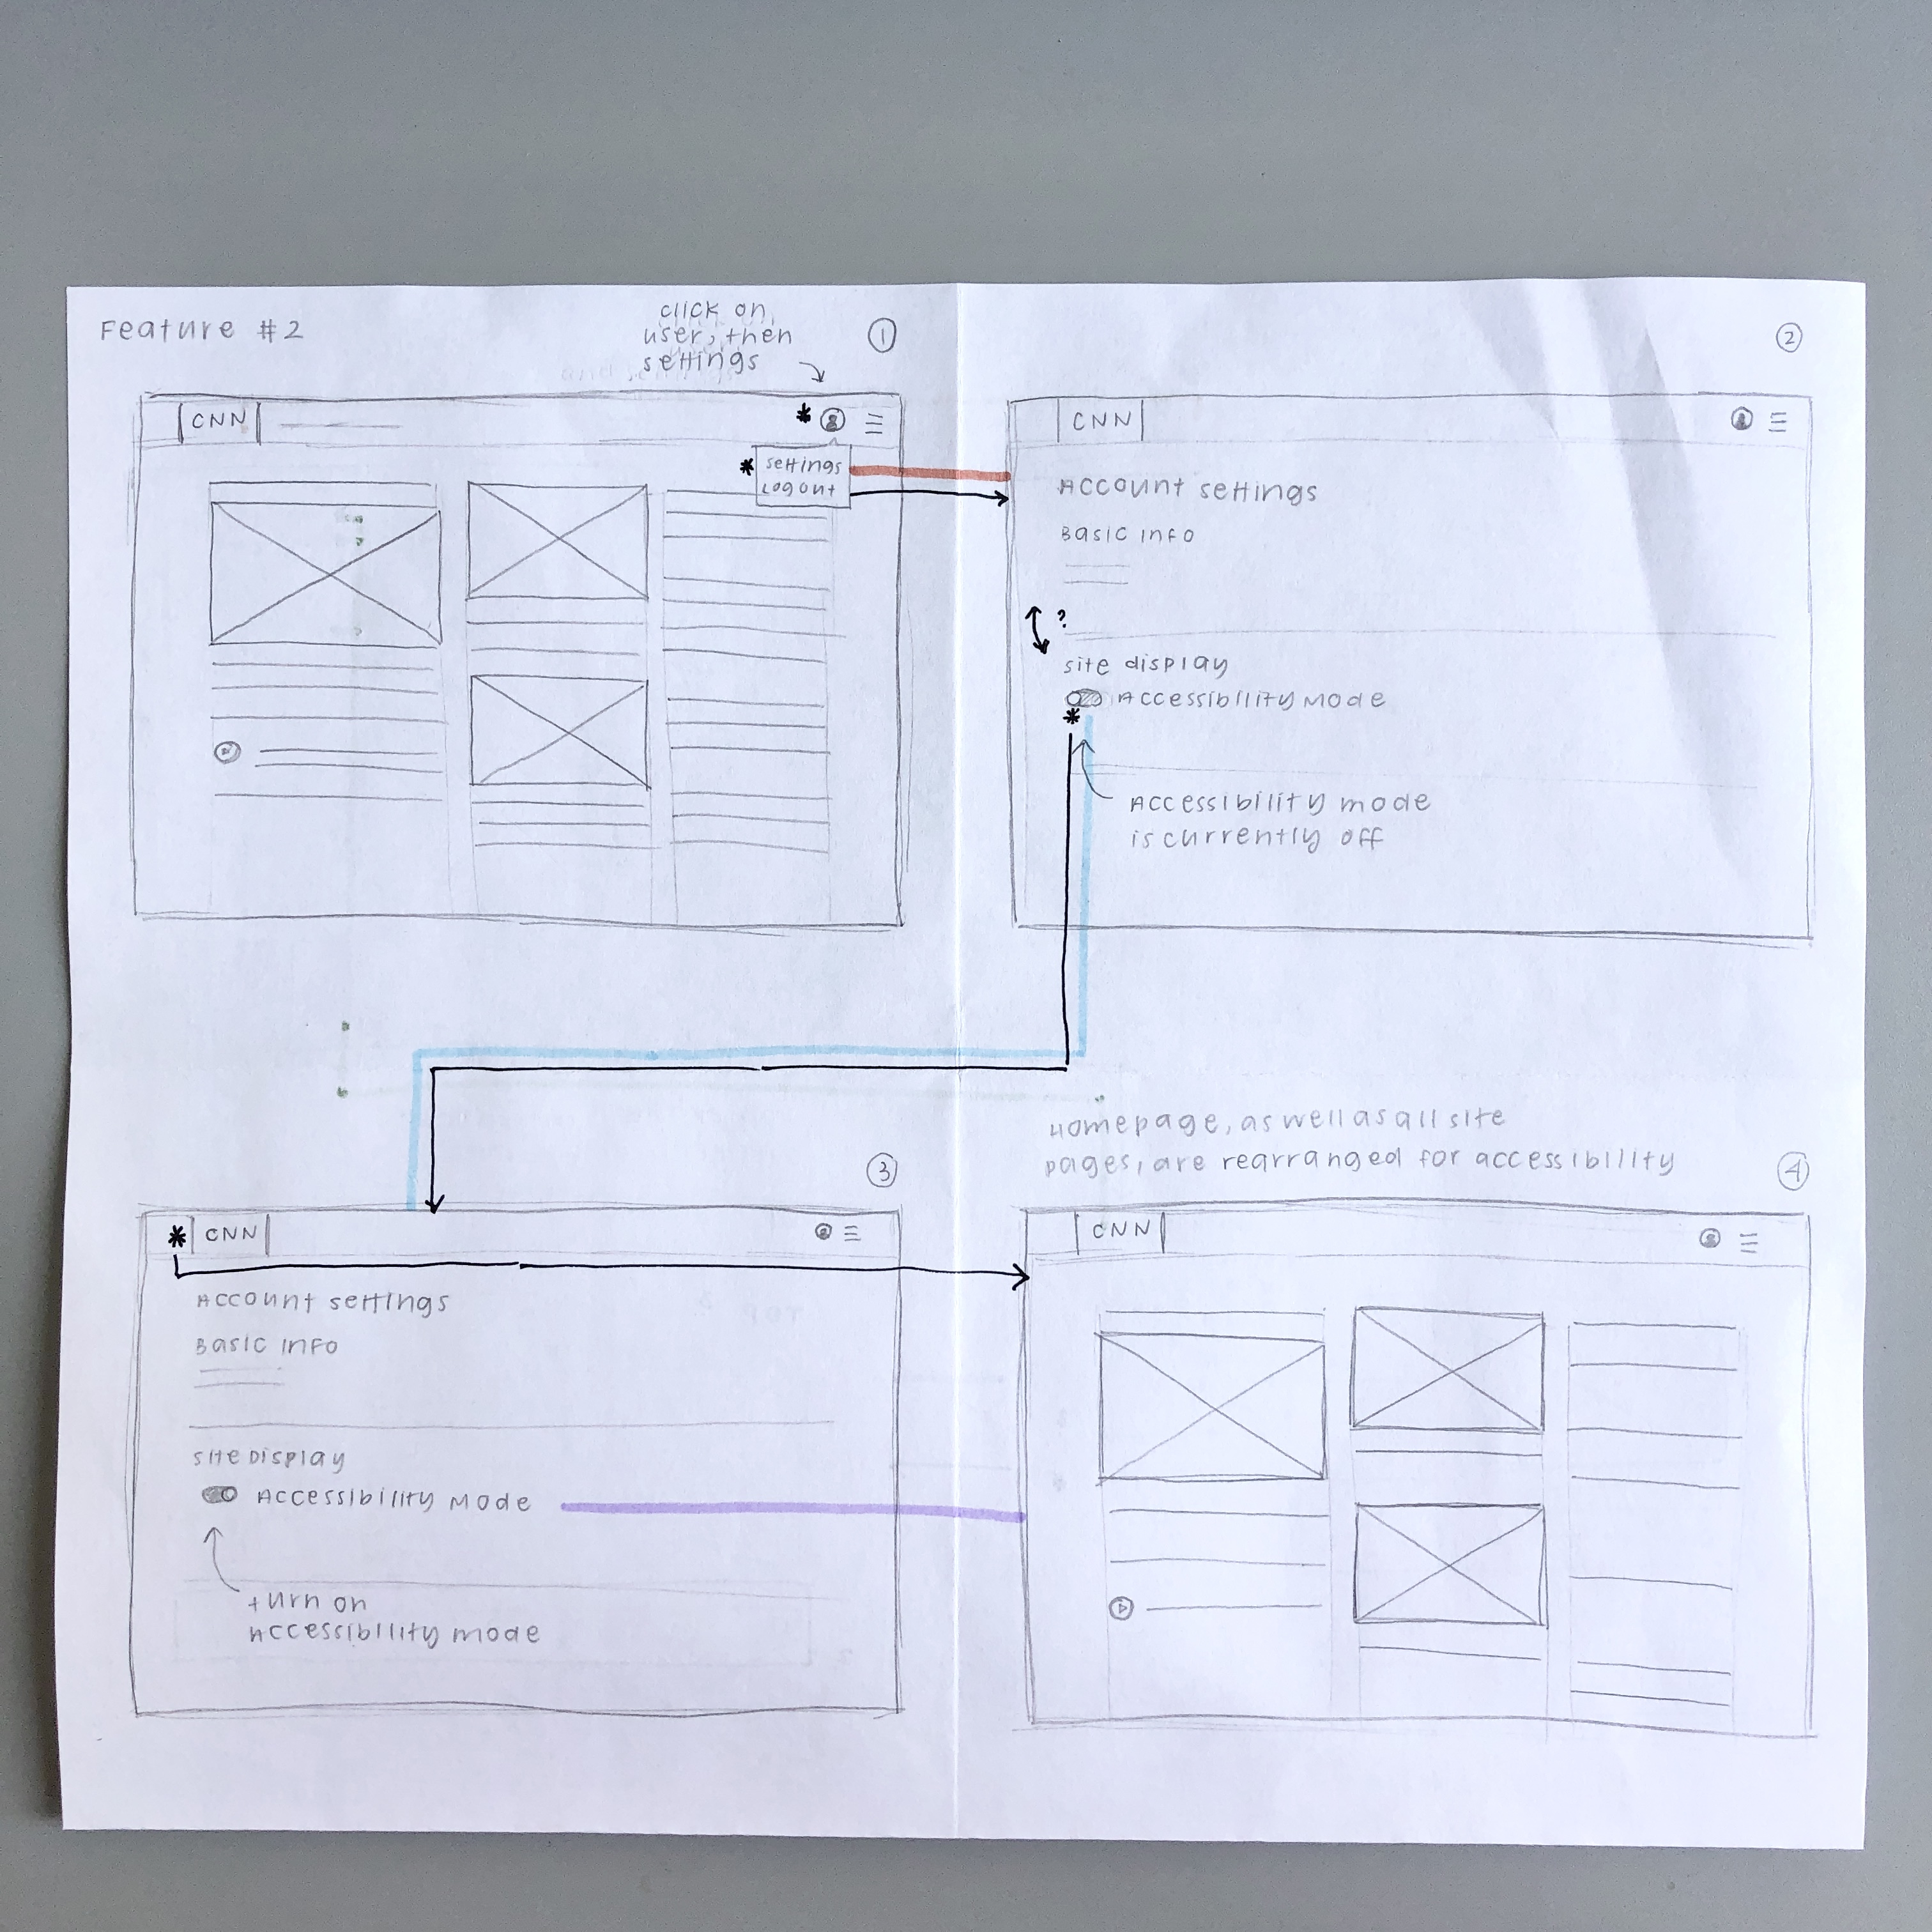 Feature #2
click on
user, then
settings
1
CNN
settings
Logout
2
CNN
Account settings
Basic info
?
site display
Accessibility Mode
Accessibility mode
is currently off
3
CNN
Account settings
Basic info
site Display
Accessibility Mode
turn on
Accessibility mode
Homepage, as well as all site
pages, are rearranged for accessibility
4
CNN